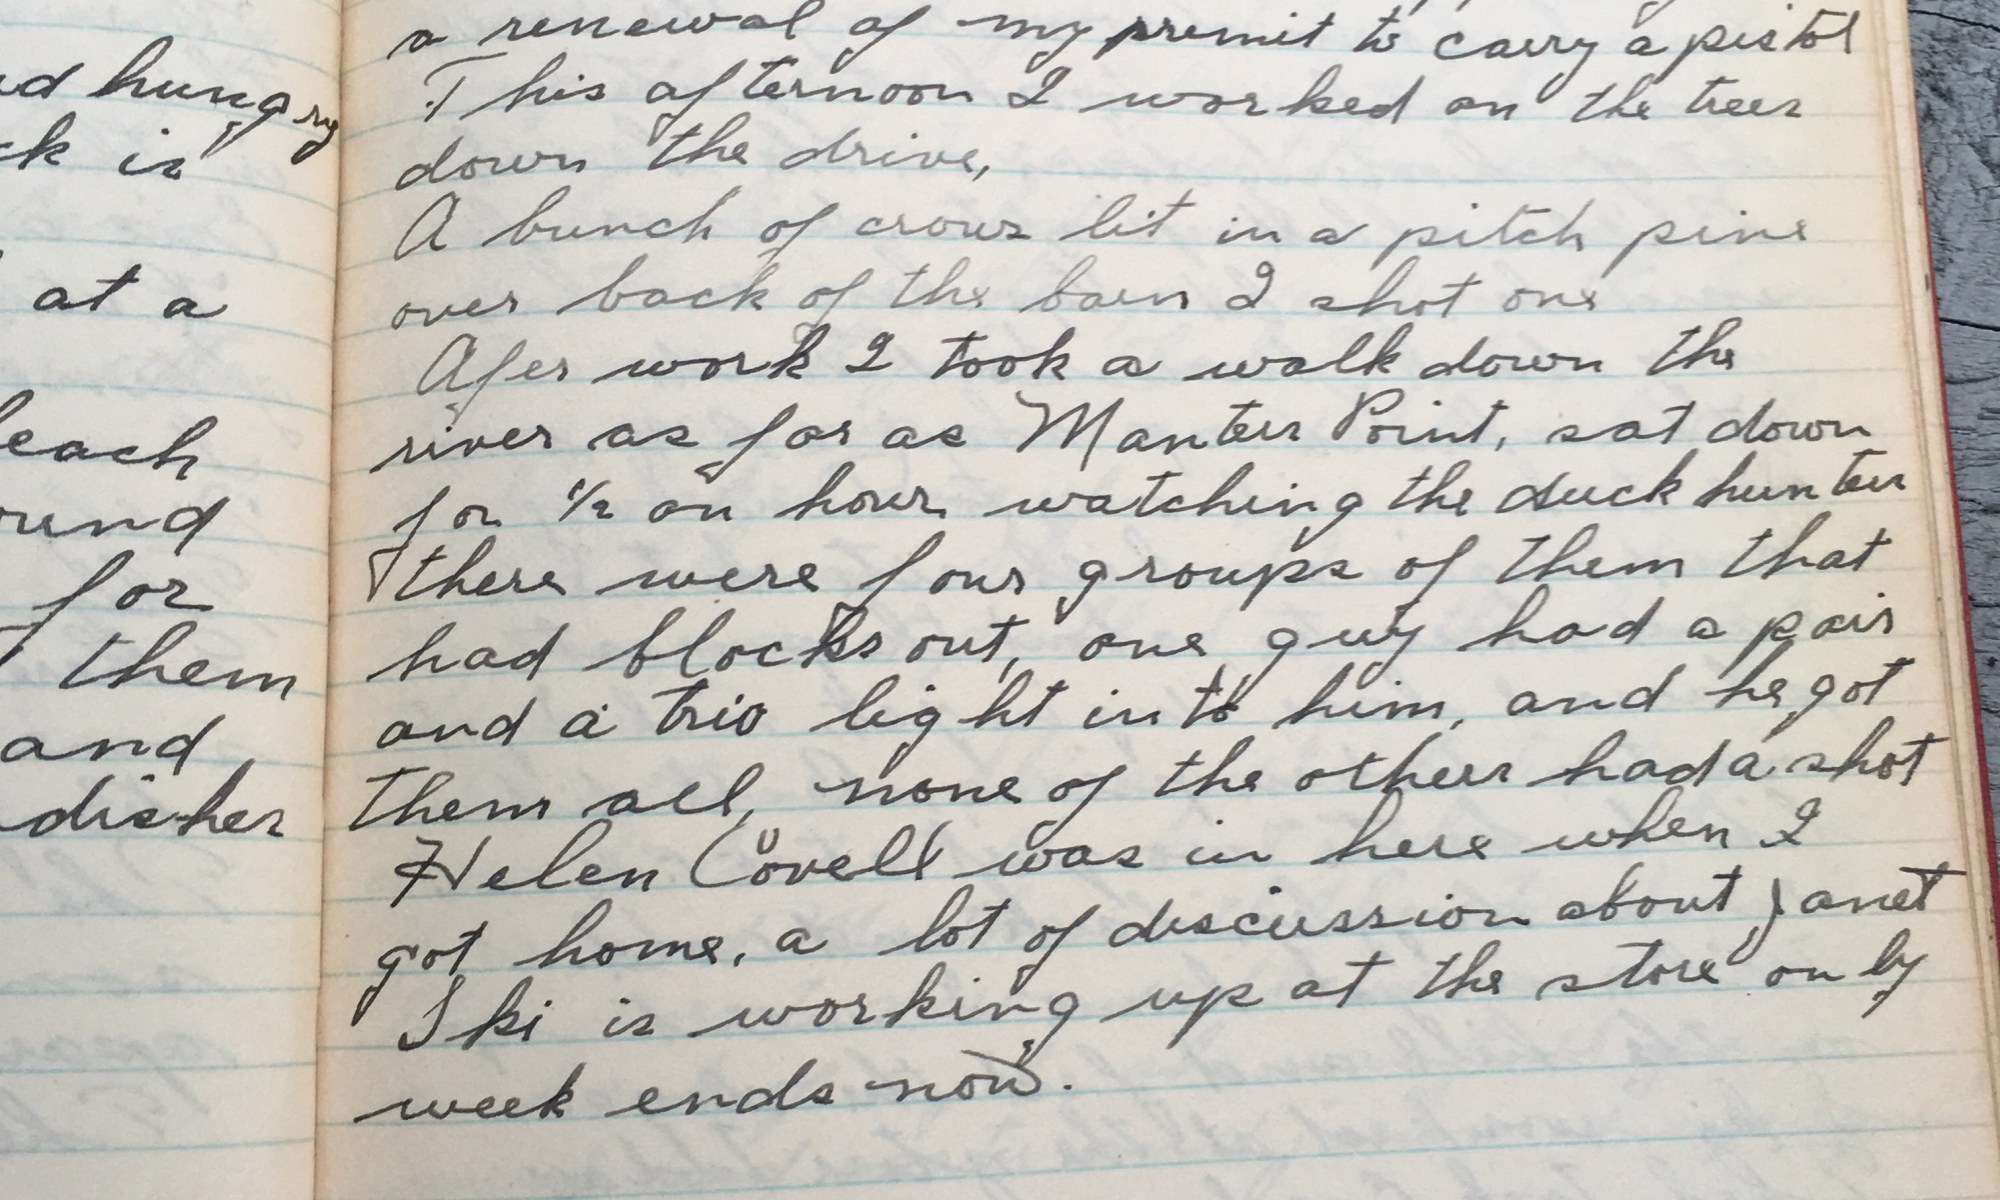 d hungry
ck is
at a
leach
ound
for
them
and
disher
a renewal of my premit to carry a pistol
This afternoon I worked on the trees
down the drive,
A bunch of crows lit in a pitch pine
over back of the barn I shot one
Afer work I took a walk down the
river as far as Manters Point, sat down
for 1/2 an hour watching the duck hunters
there were four groups of them that
had blocks out, one guy had a pair
and a trio light into him, and he got
them all, none of the others had a shot
Helen Covell was in here when I
got home, a lot of discussion about Janet
Ski is working up at the store on ly
week ends now.